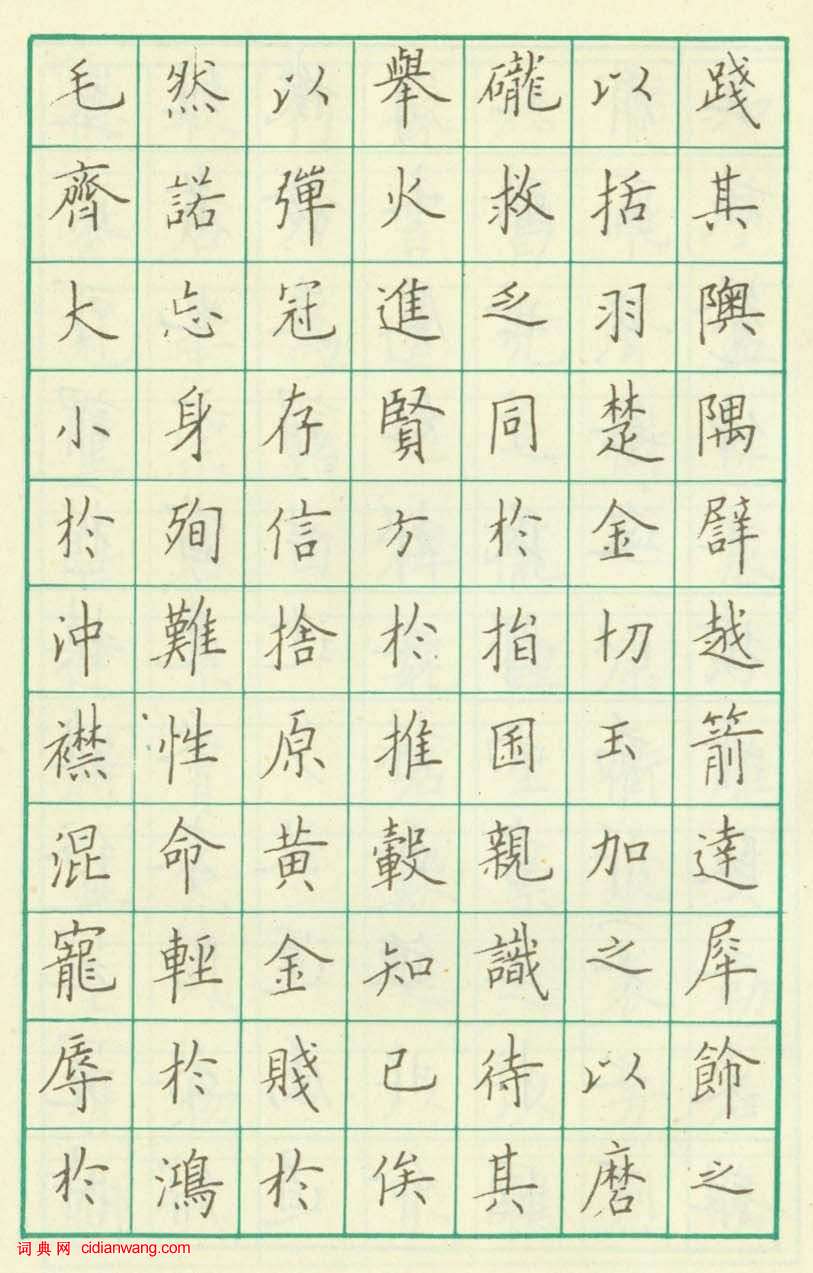 踐其隩隅譬越箭達犀飾之
以括羽楚金切玉加之以磨
礲救乏同於指囷親識待其
舉火進賢方於推轂知己俟
以彈冠存信捨原黄金賤於
然諾忘身殉難性命輕於鴻
毛齊大小於沖襟混寵辱於
词典网 cidianwang.com